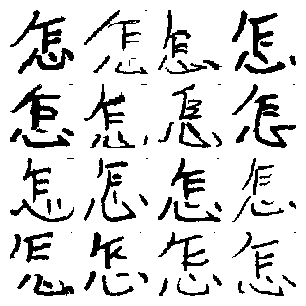 怎怎怎怎
怎怎怎怎
怎怎怎怎
怎怎怎怎